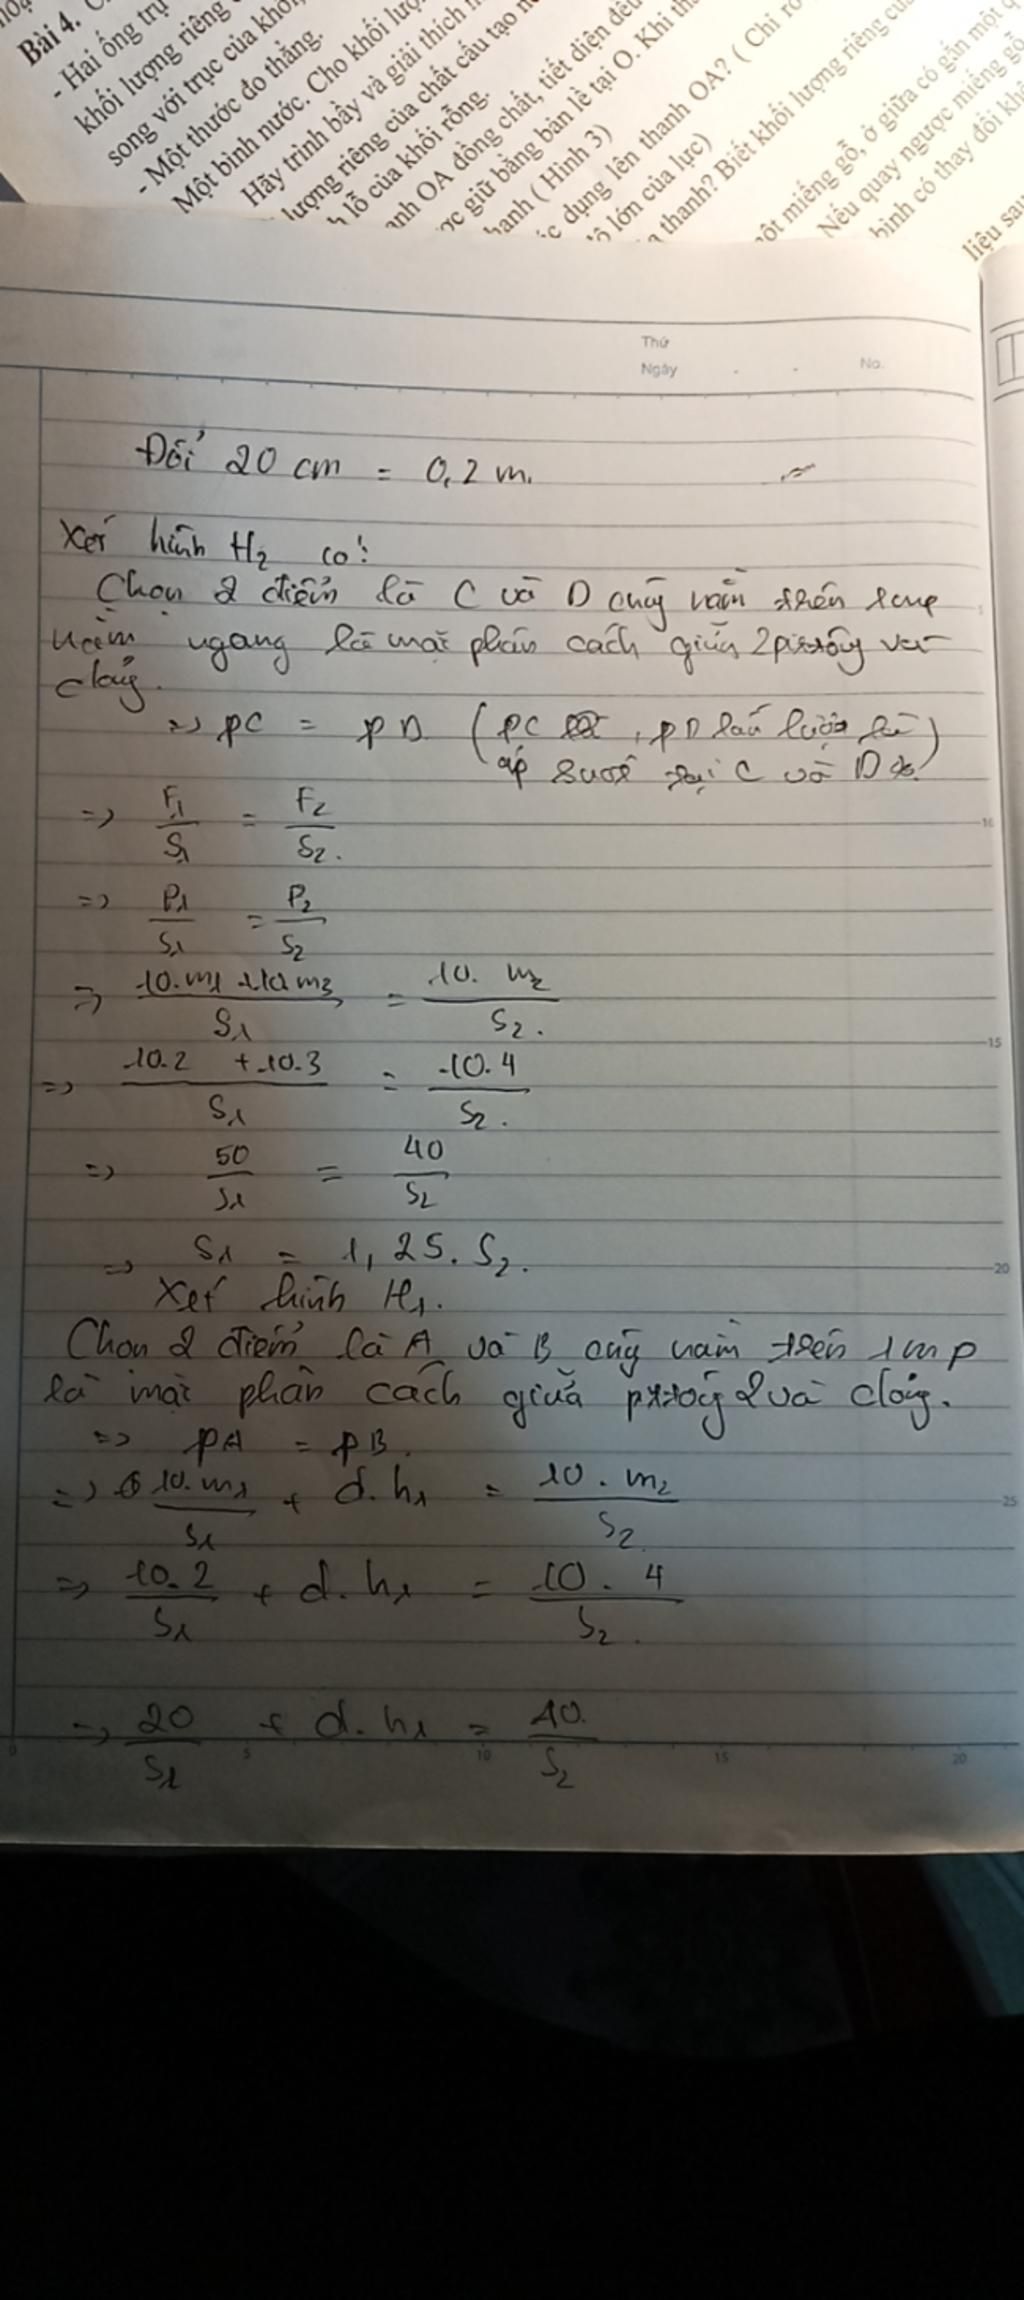 Bài 4.
- Hai ống trụ
khối lượng riêng
song với trục của khối,
- Một thước đo thẳng.
Một bình nước. Cho khối lượ
Hãy trình bày và giải thích
lượng riêng của chất cấu tạo
lỗ của khối rỗng.
anh OA đồng chất, tiết diện đều
ợc giữ bằng bản lề tại O. Khi
hanh ( Hình 3)
c dụng lên thanh OA? ( Chỉ rõ
lớn của lực)
thanh? Biết khối lượng riêng
ột miếng gỗ, ở giữa có gắn một
Nếu quay ngược miếng gỗ
bình có thay đổi
liệu sau
Thứ
Ngày . . No.
Đổi 20 cm = 0,2 m.
Xét hình H2 có:
Chọn 2 điểm là C và D cùng nằm trên 1 mp
nằm ngang là mặt phân cách giữa 2 pittông và
clỏng.
=> pC = pD (pC , pD lần lượt là
áp suất tại C và D)
=> F1/S1 = F2/S2.
=> P1/S1 = P2/S2
=> 10.m1 + 10m3/S1 = 10. m2/S2.
=> 10.2 + 10.3/S1 = 10.4/S2.
=> 50/S1 = 40/S2
=> S1 = 1,25. S2.
Xét hình H1.
Chọn 2 điểm là A và B cùng nằm trên 1 mp
là mặt phân cách giữa pittông 2 và clỏng.
=> pA = pB.
=> 10.m1/S1 + d.h1 = 10. m2/S2
=> 10.2/S1 + d.h1 = 10. 4/S2.
=> 20/S1 + d.h1 = 40/S2
10
15
20
25
0 5 10 15 20